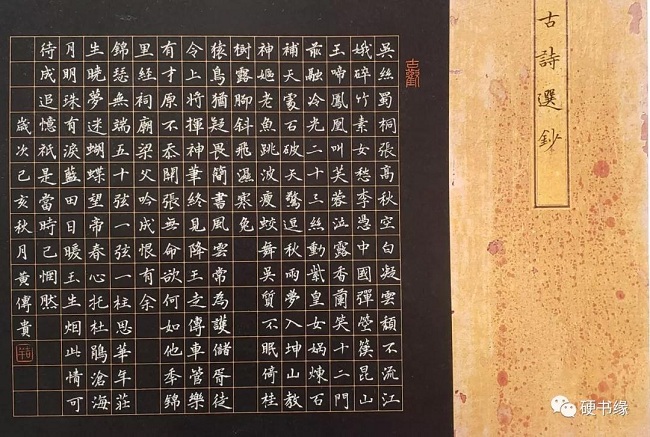 古詩選鈔
吳絲蜀桐張高秋空白凝雲頹不流江
娥碎竹素女愁李憑中國彈箜篌昆山
玉啼鳳凰叫芙蓉泣露香蘭笑十二門
前融冷光二十三絲動紫皇女媧煉石
補天處石破天驚逗秋雨夢入坤山教
神嫗老魚跳波瘦蛟舞吳質不眠倚桂
樹露腳斜飛濕寒兔
猿鳥猶疑畏簡書風雲常為護儲胥徒
令上將揮神筆終見降王走傳車管樂
有才原不忝關張無命欲何如他年錦
里經祠廟梁父吟成恨有余
錦瑟無端五十弦一弦一柱思華年莊
生曉夢迷蝴蝶望帝春心托杜鵑滄海
月明珠有淚藍田日暖玉生烟此情可
待成追憶祇是當時已惘然
歲次己亥秋月黃傳貴
硬书缘